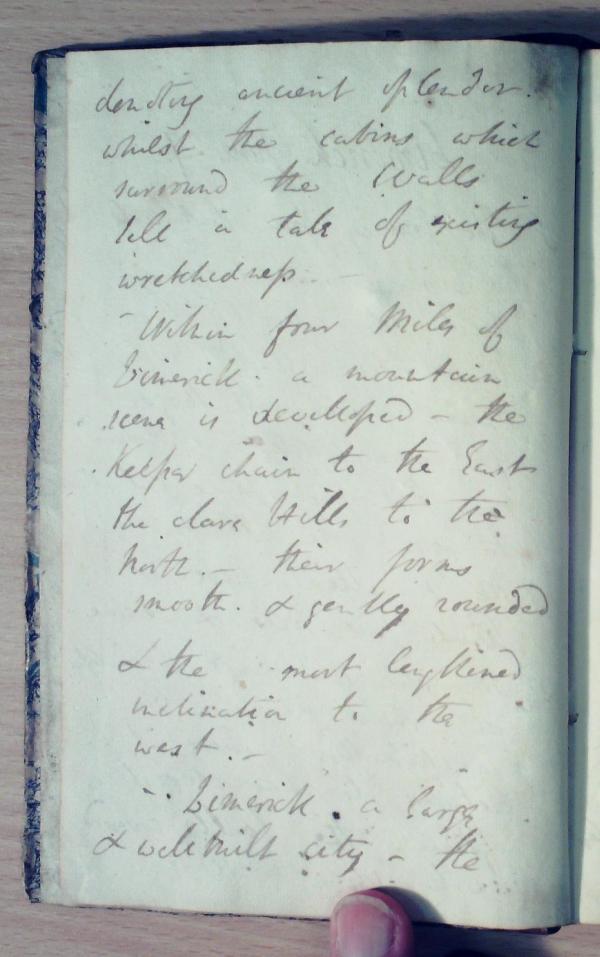 denoting ancient splendor.
whilst the cabins which
surround the Walls
tell a tale of existing
wretchedness. -
- Within four Miles of
Limerick. a mountain
scene is developed - the
Keeper chain to the East
the clare Hills to the
North. - their forms
smooth. & gently rounded
& the most lengthened
inclination to the
west. -
- Limerick. a large
& well built city - the